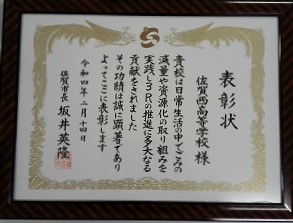 表彰状
佐賀西高等学校 様
貴校は日常生活の中でごみの
減量や資源化の取り組みを
実践し3Rの推進に多大なる
貢献をされました
その功績は誠に顕著であり
よってここに表彰します
令和四年二月十四日
佐賀市長 坂井英隆